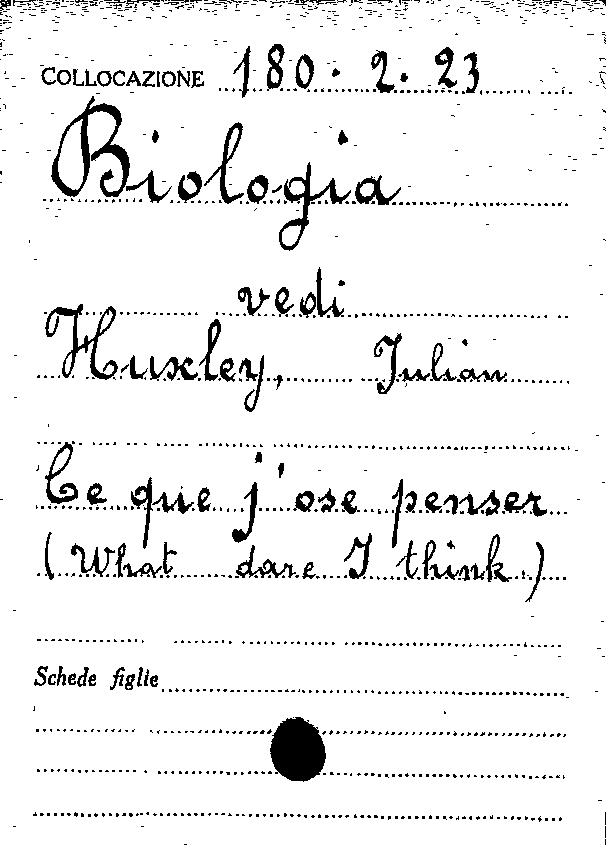 COLLOCAZIONE 180. 2. 23
Biologia
vedi
Huxley, Julian
Ce que j'ose penser
(What dare I think.)
Schede figlie